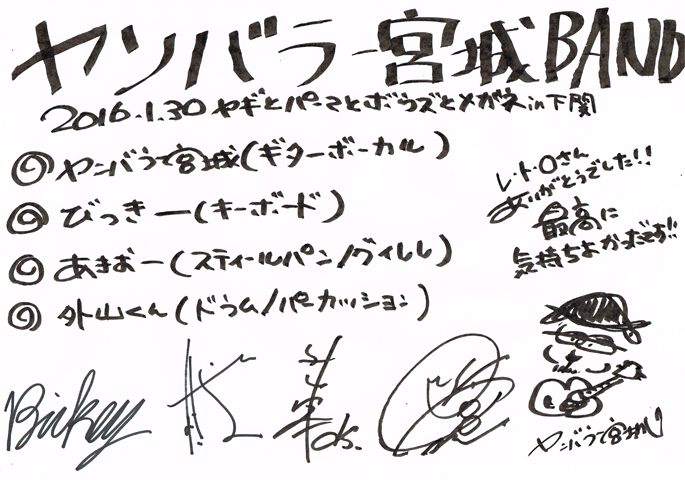 ヤンバラー宮城BAND
2016.1.30 ヤギとパーマとボウズとメガネin下関
ヤンバラー宮城(ギターボーカル)
びっきー(キーボード)
あきおー(スティールパン/グィレレ)
外山くん(ドラム/パーカッション)
レ・ト・ロさん
ありがとうでした!!
最高に
気持ちよかったです!!
Bickey
ヤンバラー宮城